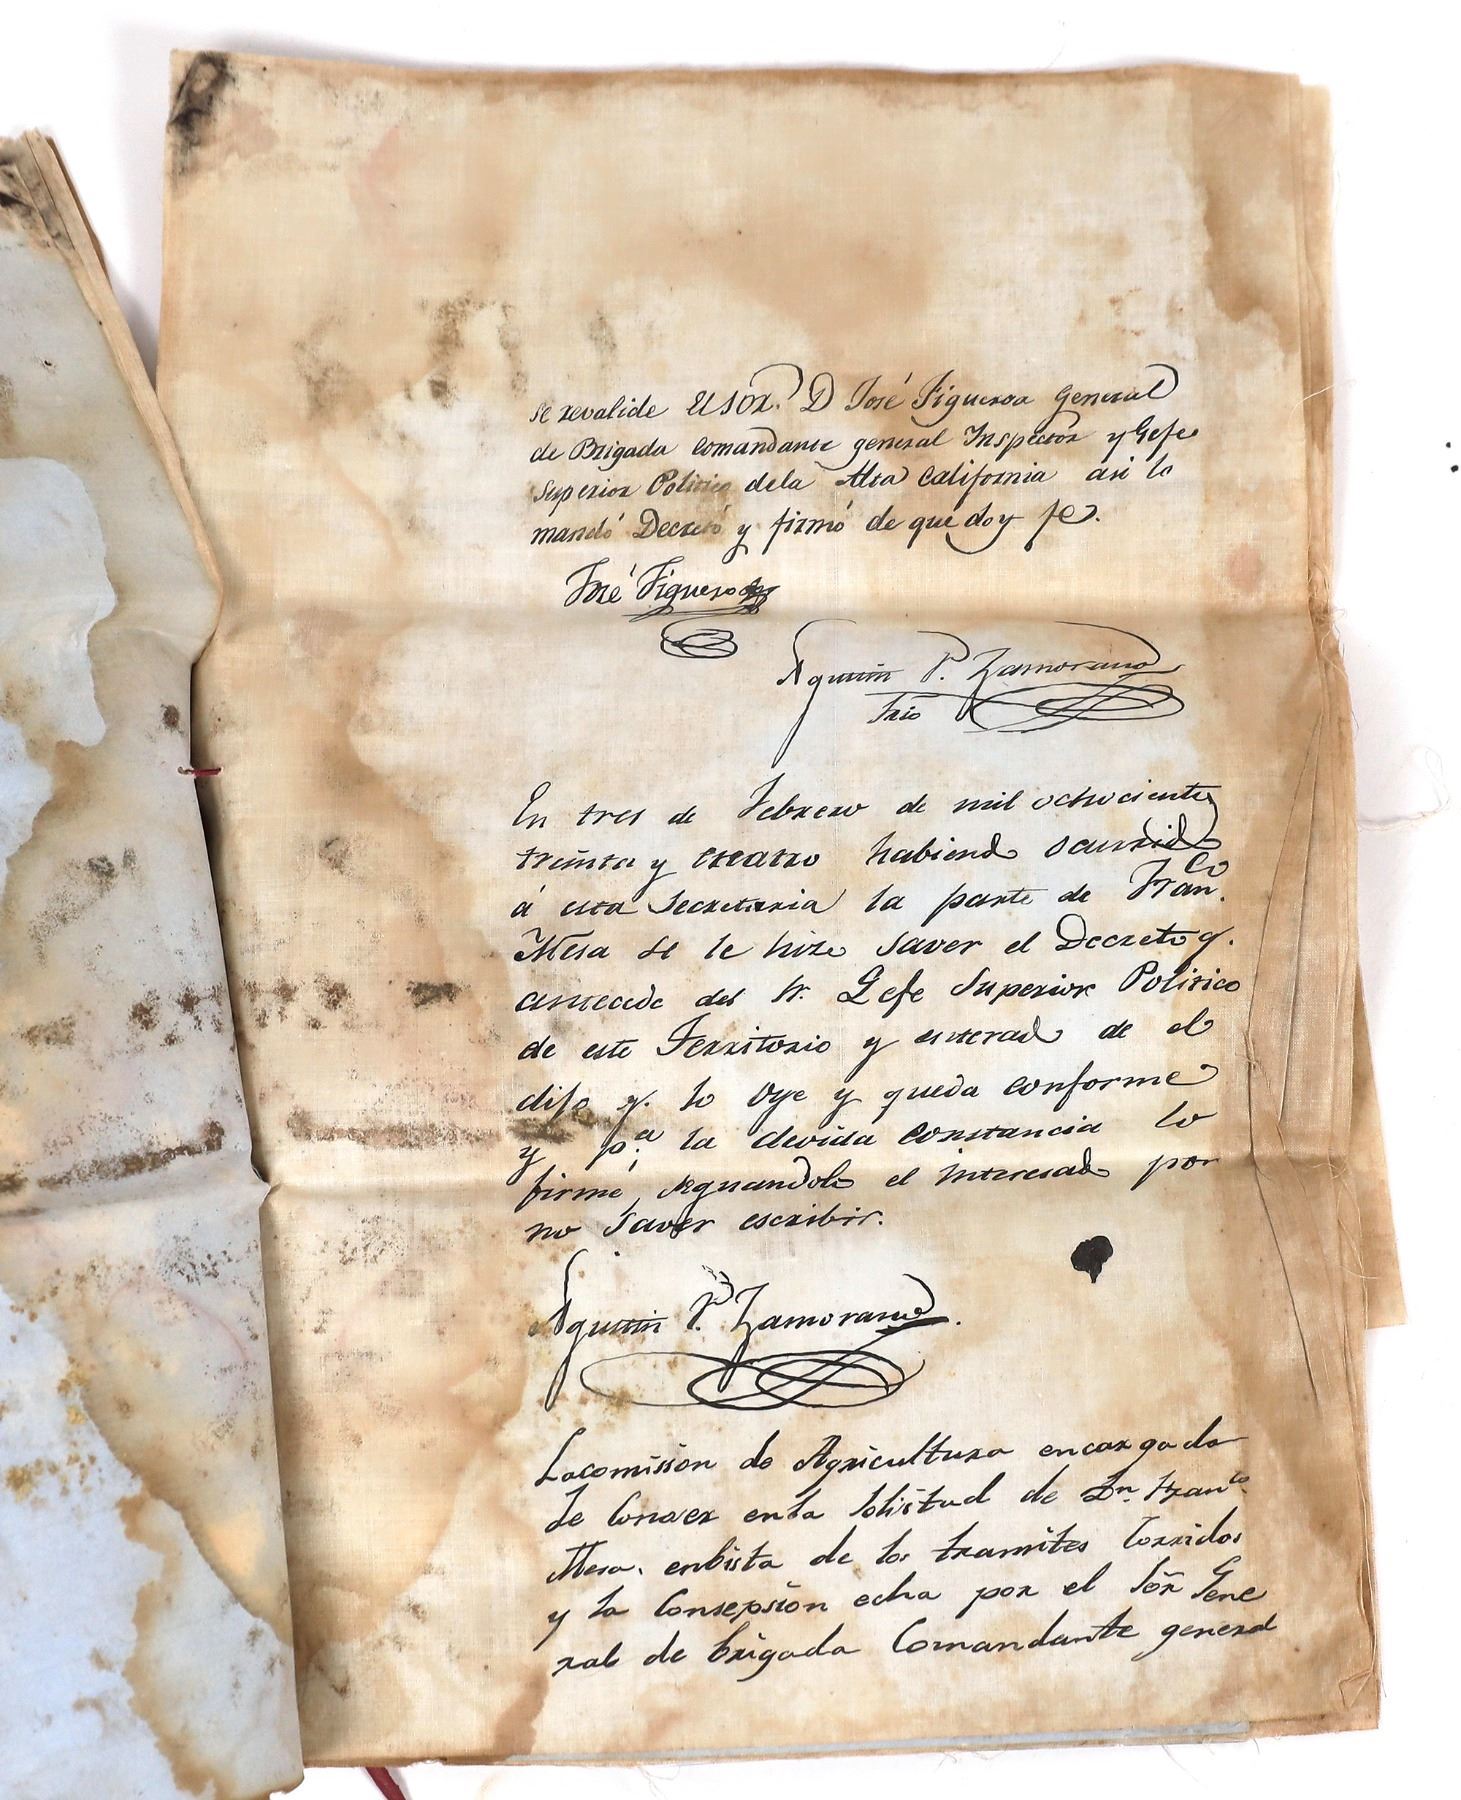 se revalide El SOR. D José Figueroa General
de Brigada comandante general Inspector y Gefe
Superior Politico dela Alta California asi lo
mandó Decretó y firmó de que doy fe.
José Figueroa
Agustin V. Zamorano
Srio
En tres de Febrero de mil ochocientos
treinta y cuatro habiendo ocurrido
á esta Secretaria la parte de Fran.co
Mesa se le hizo saver el Decreto q.
antecede del Sr. Gefe Superior Politico
de este Territorio y enterado de el
dijo q. lo oye y queda conforme
y p.a la devida constancia lo
firmé, signandolo el interesado por
no saver escribir.
Agustin V. Zamorano.
Lacomision de Agricultura encargada
de Conoser enla Solisitud de Dn. Franco.
Mesa. enbista de los tramites Corridos
y la Consepsion echa por el Sõr Gene
rale de brigada Comandante general